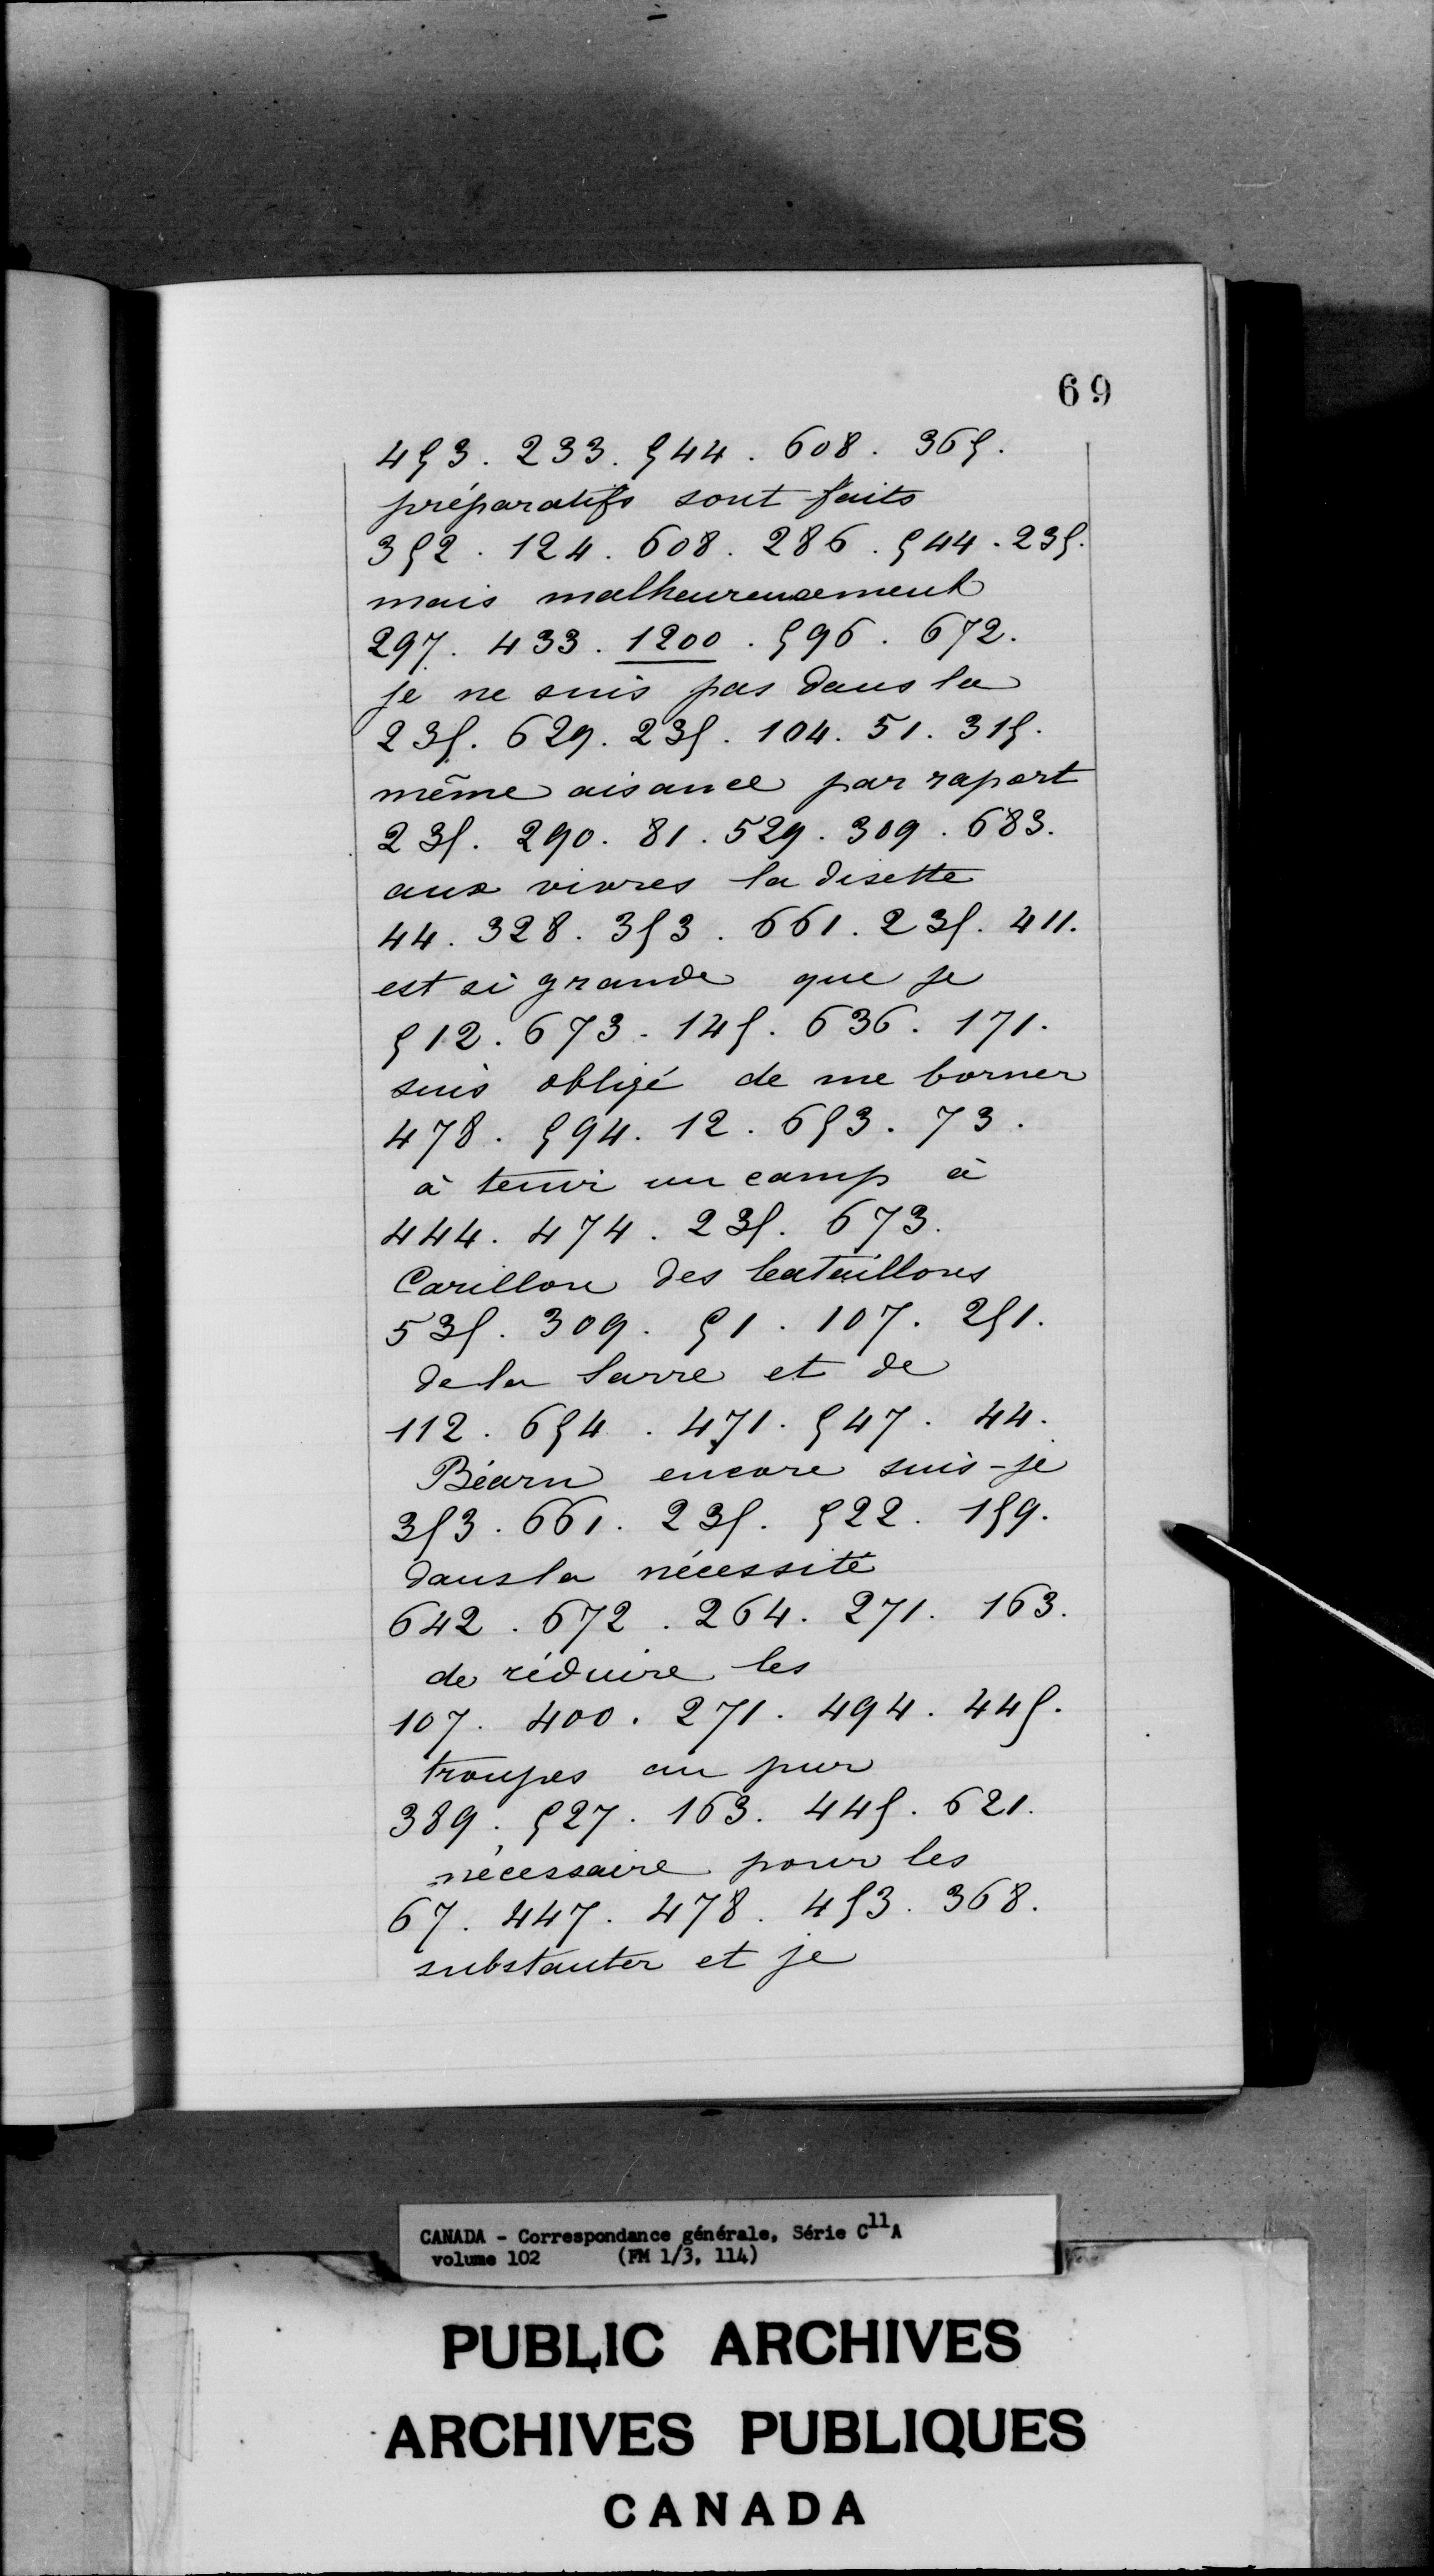 69
453. 233. 544. 608. 365.
préparatifs sont faits
352. 124. 608. 286. 544. 235.
mais malheureusement
297. 433. 1200. 596. 672.
je ne suis pas dans la
235. 629. 235. 104. 51. 315.
même aisance par raport
235. 290. 81. 529. 309. 683.
aux vivres la disette
44. 328. 353. 661. 235. 411.
est si grande que je
512. 673. 145. 636. 171.
suis obligé de me borner
478. 594. 12. 653. 73.
à tenir un camp à
444. 474. 235. 673.
Carillon des bataillons
535. 309. 51. 107. 251.
de la Sarre et de
112. 654. 471. 547. 44.
Béarn encore suis-je
353. 661. 235. 522. 159.
dans la nécessité
642. 672. 264. 271. 163.
de réduire les
107. 400. 271. 494. 445.
troupes au pur
389. 527. 163. 445. 621.
nécessaire pour les
67. 447. 478. 453. 368.
substanter et je
CANADA - Correspondance générale, Série C11A
volume 102 (FM 1/3, 114)
PUBLIC ARCHIVES
ARCHIVES PUBLIQUES
CANADA